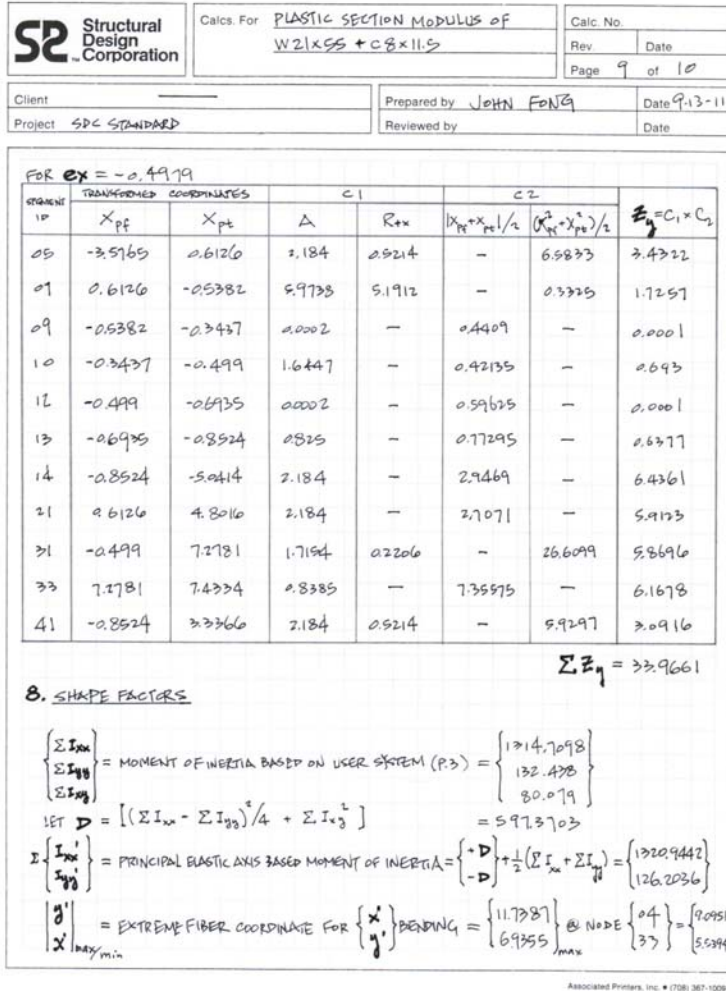 Structural
Design
Corporation
Calcs. For PLASTIC SECTION MODULUS OF
W21x55 + C8x11.5
Calc. No.
Rev. Date
Page 9 of 10
Client
Prepared by JOHN FONG Date 9-13-11
Project SDC STANDARD
Reviewed by Date
FOR ex = -0.4979
SEGMENT ID TRANSFORMED COORDINATES C1 C2 Zy=C1×C2
Xpf Xpt A R+x |Xpf+Xpt|/2 (X²pf+X²pt)/2
05 -3.5765 0.6126 2.184 0.5214 – 6.5833 3.4322
07 0.6126 -0.5382 5.9738 5.1912 – 0.3325 1.7257
09 -0.5382 -0.3437 0.0002 – 0.4409 – 0.0001
10 -0.3437 -0.499 1.6447 – 0.42135 – 0.693
12 -0.499 -0.6935 0.0002 – 0.59625 – 0.0001
13 -0.6935 -0.8524 0.825 – 0.77295 – 0.6377
14 -0.8524 -5.0414 2.184 – 2.9469 – 6.4361
21 0.6126 4.8016 2.184 – 2.7071 – 5.9123
31 -0.499 7.2781 1.7154 0.2206 – 26.6099 5.8696
33 7.2781 7.4334 0.8385 – 7.35575 – 6.1678
41 -0.8524 3.3366 2.184 0.5214 – 5.9297 3.0916
ΣZy = 33.9661
8. SHAPE FACTORS
{ΣIxx ΣIyy ΣIxy} = MOMENT OF INERTIA BASED ON USER SYSTEM (P.3) = {1314.7098 132.438 80.079}
LET D = [(ΣIxx - ΣIyy)²/4 + ΣIxy²] = 597.3703
Σ{Ixx' Iyy'} = PRINCIPAL ELASTIC AXIS BASED MOMENT OF INERTIA = {+D -D} + ½(ΣIxx + ΣIyy) = {1320.9442 126.2036}
|y' x'|max/min = EXTREME FIBER COORDINATE FOR {x' y'} BENDING = {11.7387 6.9355}max @ NODE {04 33} = {9.0951 5.5394
Associated Printers, Inc. • (708) 367-1008